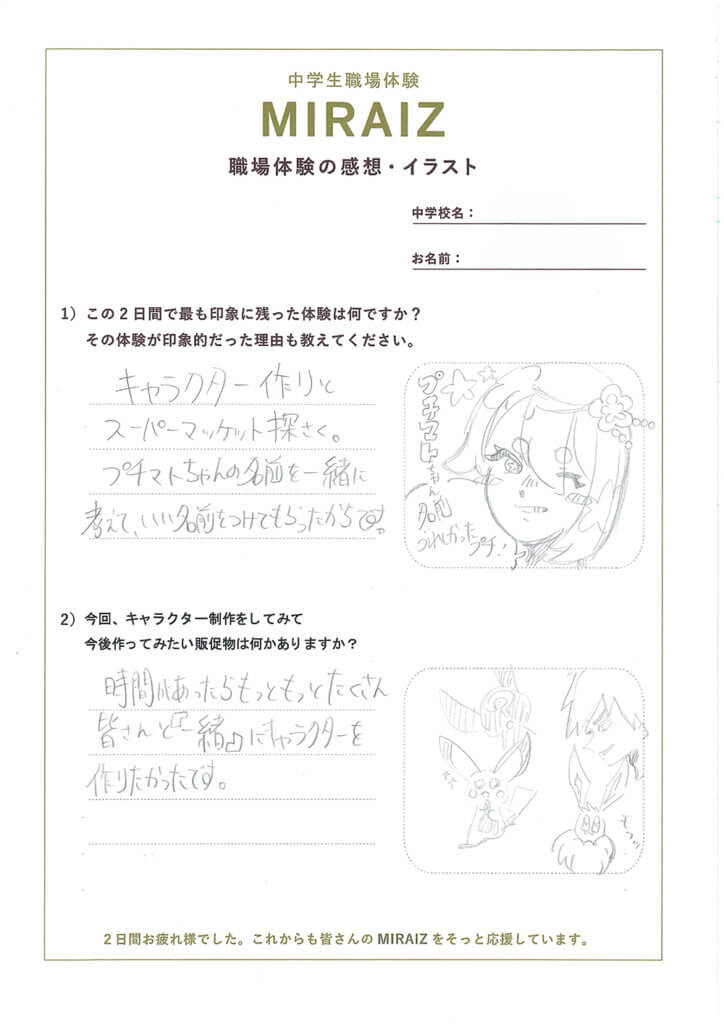 中学生職場体験
MIRAIZ
職場体験の感想・イラスト
中学校名：
お名前：
1）この2日間で最も印象に残った体験は何ですか？
その体験が印象的だった理由も教えてください。
キャラクター作りと
スーパーマッケット探さく。
プチマトちゃんの名前を一緒に
考えて、いい名前をつけてもらったからです。
プチマトちゃん
名前
うれしかった
プチ！
2）今回、キャラクター制作をしてみて
今後作ってみたい販促物は何かありますか？
時間があったらもっともっとたくさん
皆さんと『一緒』にキャラクターを
作りたかったです。
2日間お疲れ様でした。これからも皆さんのMIRAIZをそっと応援しています。